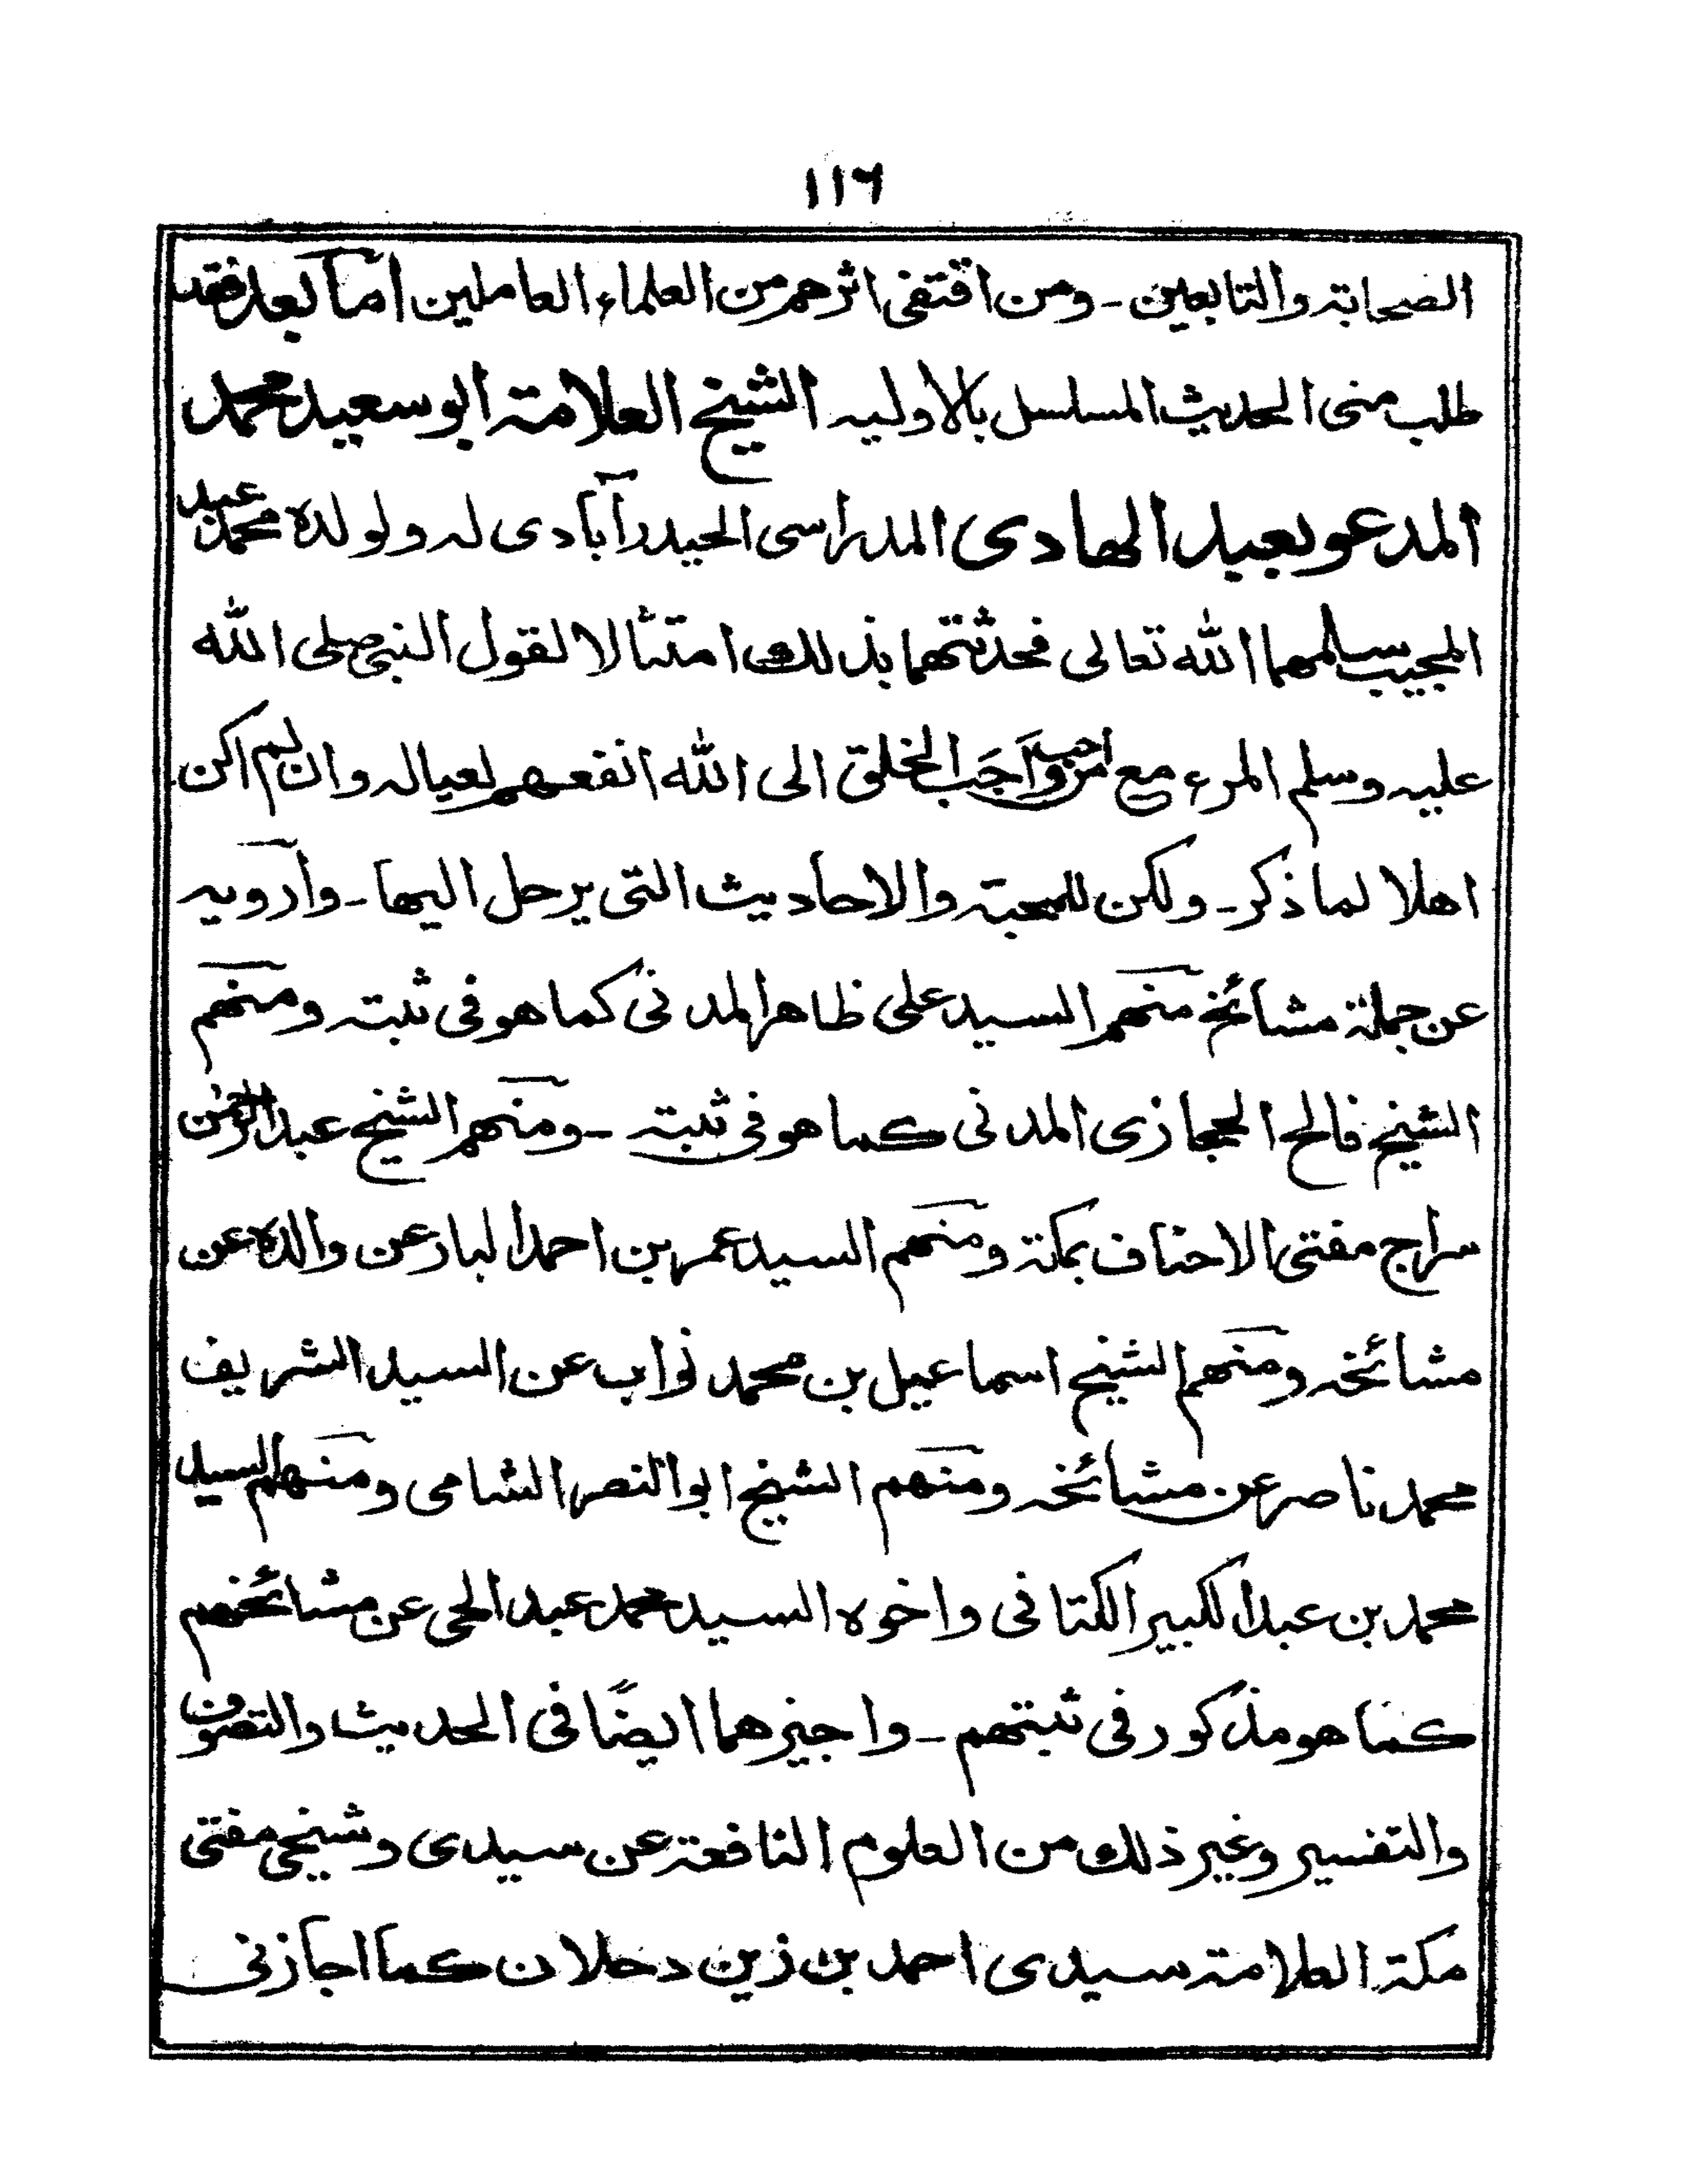 ١١٦
الصحابة والتابعين ـ ومن اقتفى اثرهم من العلماء العاملين اما بعد فقد
طلب منى الحديث المسلسل بالاوليه الشيخ العلامة ابو سعيد محمد
المدعو بعبد الهادى المدراسى الحيدرآبادى له ولولده محمد عبد
المجيب سلمهما الله تعالى فحدثتهما بذلك امتثالا لقول النبى صلى الله
عليه وسلم المرء مع من احب واحب الخلق الى الله انفعهم لعياله وان لم اكن
اهلا لما ذكر ـ ولكن للمحبة والاحاديث التى يرحل اليها ـ وارويه
عن جملة مشائخ منهم السيد على ظاهر المدنى كما هو فى ثبته ومنهم
الشيخ فالح الحجازى المدنى كما هو فى ثبته ـ ومنهم الشيخ عبد الرحمن
سراج مفتى الاحناف بمكة ومنهم السيد عمر بن احمد البار عن والده عن
مشائخه ومنهم الشيخ اسماعيل بن محمد نواب عن السيد الشريف
محمد ناصر عن مشائخه ومنهم الشيخ ابو النصر الشامى ومنهم السيد
محمد بن عبد الكبير الكتانى واخوه السيد محمد عبد الحى عن مشائخهم
كما هو مذكور فى ثبتهم ـ واجيزهما ايضًا فى الحديث والتصوف
والتفسير وغير ذلك من العلوم النافعة عن سيدى وشيخى مفتى
مكة العلامة سيدى احمد بن زين دحلان كما اجازنى